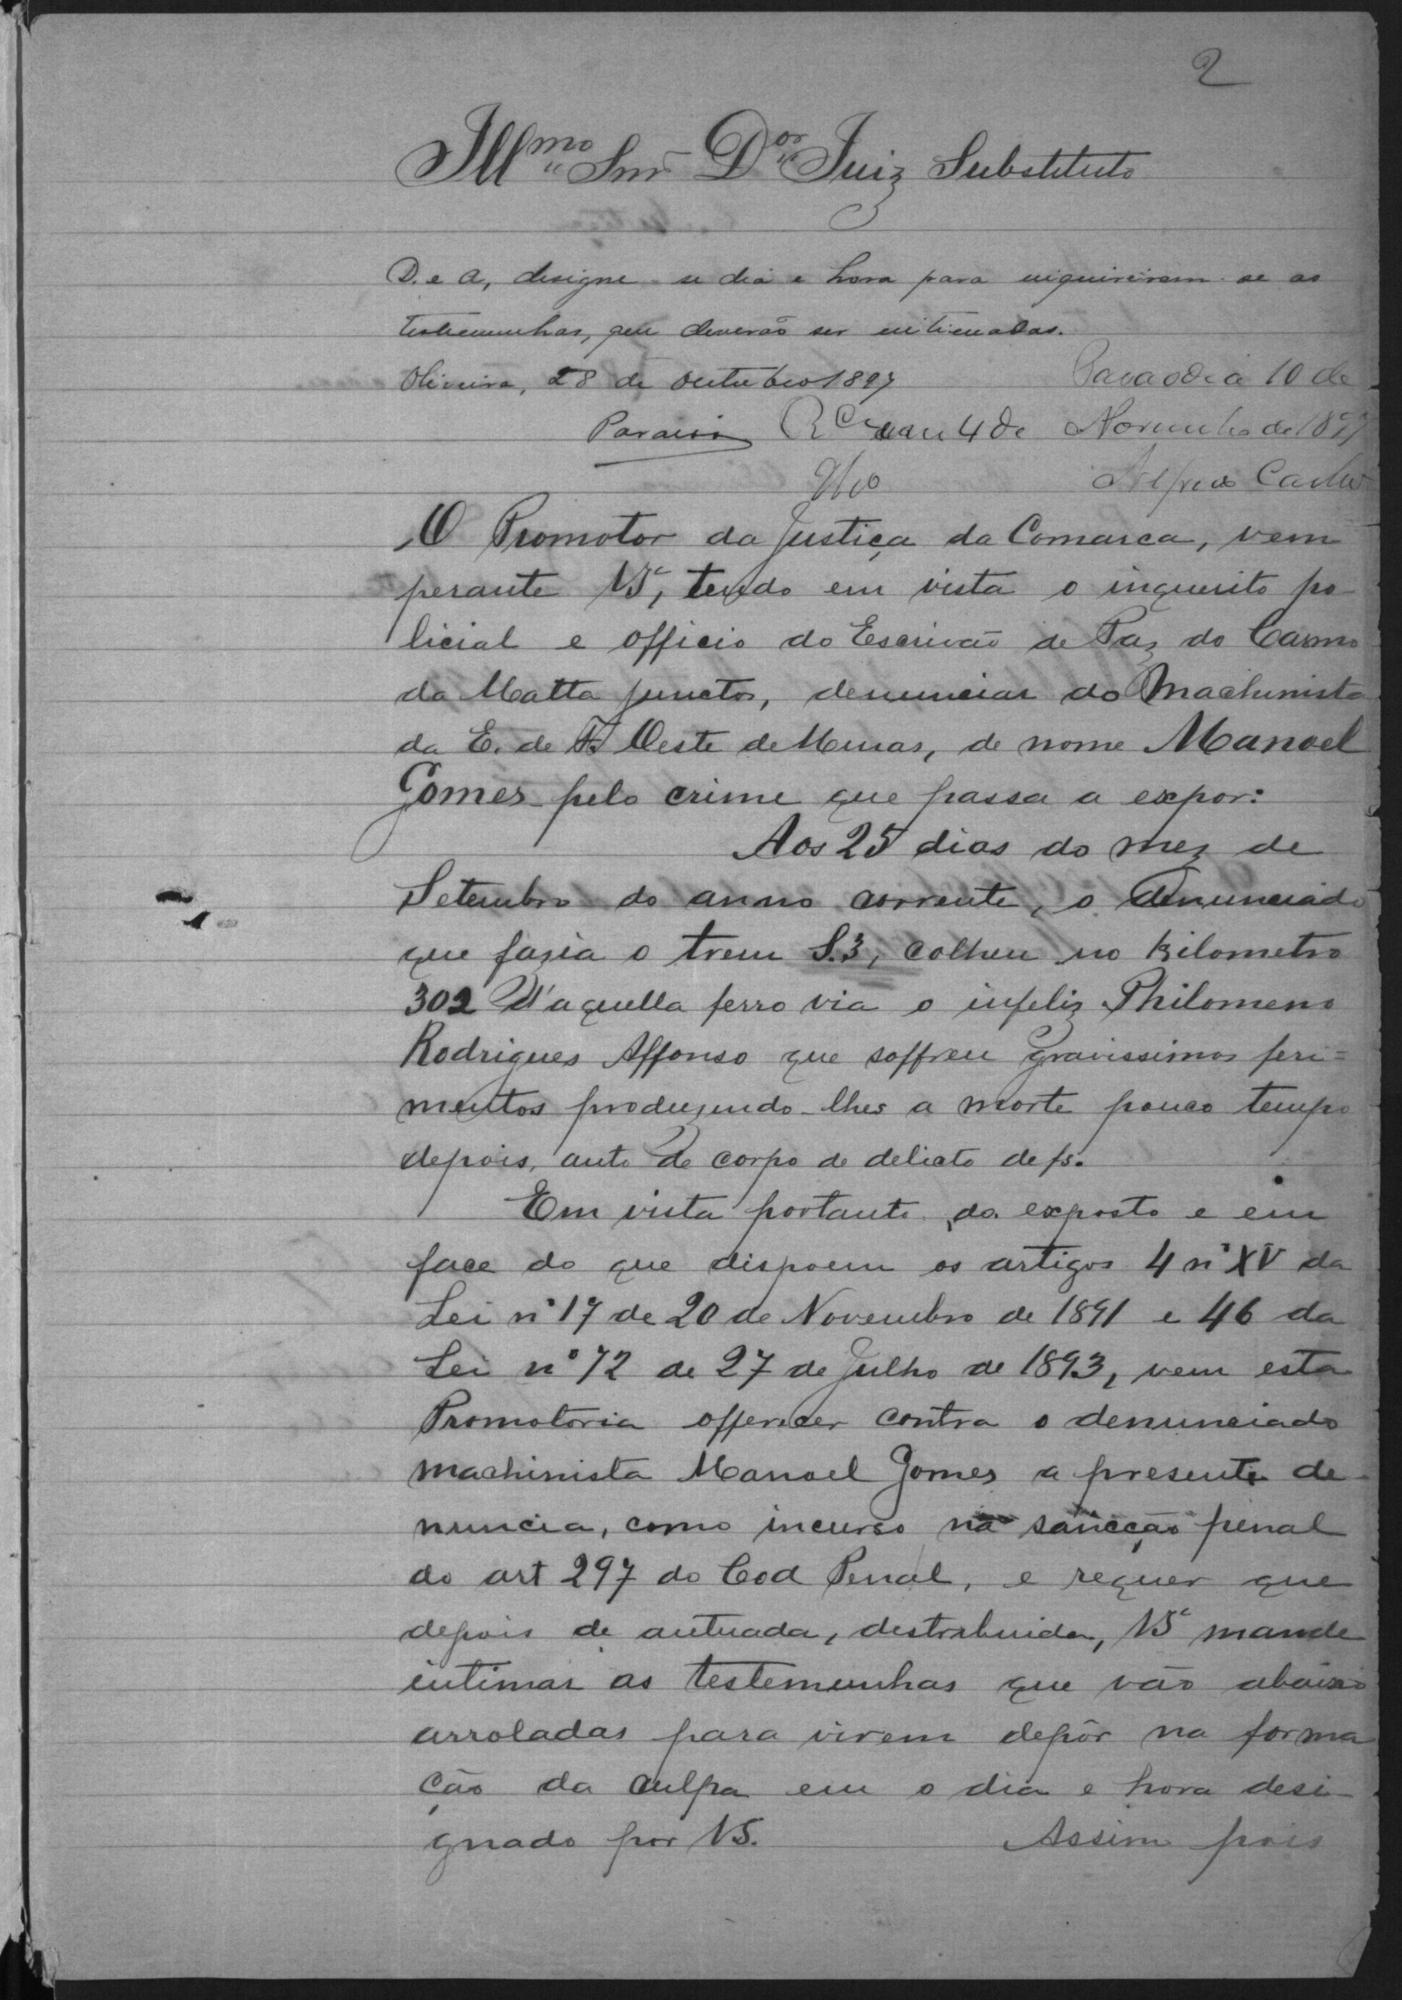 2
Illmo Snr Dor Juiz Substituto
D. e A, designe-se dia e hora para inquirirem-se as
testemunhas, que deverão ser intimadas.
Oliveira, 28 de Outubro 1897
Para o dia 10 de
Paraiso
em 4 de Novembro de 1897
Alfredo
O Promotor da Justiça da Comarca, vem
perante VSª, tendo em vista o inquerito po-
licial e officio do Escrivão de Paz do Carmo
da Matta junctos, denunciar do Machinista
da E. de F. Oeste de Minas, de nome Manoel
Gomes pelo crime que passa a expor:
Aos 25 dias do mez de
Setembro do anno corrente, o denunciado
que fazia o trem S.3, colheu no kilometro
302 d'aquella ferro via o infeliz Philomeno
Rodrigues Affonso que soffreu gravissimos feri=
mentos produzindo-lhes a morte pouco tempo
depois, auto de corpo de delicto de fs.
Em vista portanto do exposto e em
face do que dispoem os artigos 4 nº XV da
Lei nº 17 de 20 de Novembro de 1891 e 46 da
Lei nº 72 de 27 de Julho de 1893, vem esta
Promotoria offerecer contra o denunciado
machinista Manoel Gomes a presente de-
nuncia, como incurso na sancção penal
do art 297 do Cod Penal, e requer que
depois de autuada, destrebuida, VSª mande
intimar as testemunhas que vão abaixo
arroladas para virem depôr na forma
ção da culpa em o dia e hora desi-
gnado por VS. Assim pois